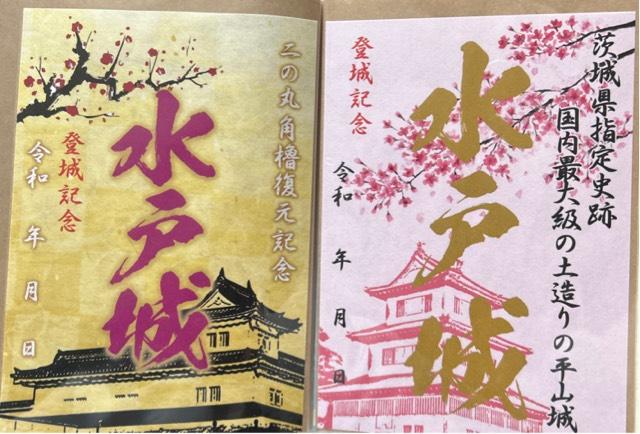 二の丸角櫓復元記念
水戸城
登城記念
令和 年 月 日
茨城県指定史跡
国内最大級の土造りの平山城
水戸城
登城記念
令和 年 月 日